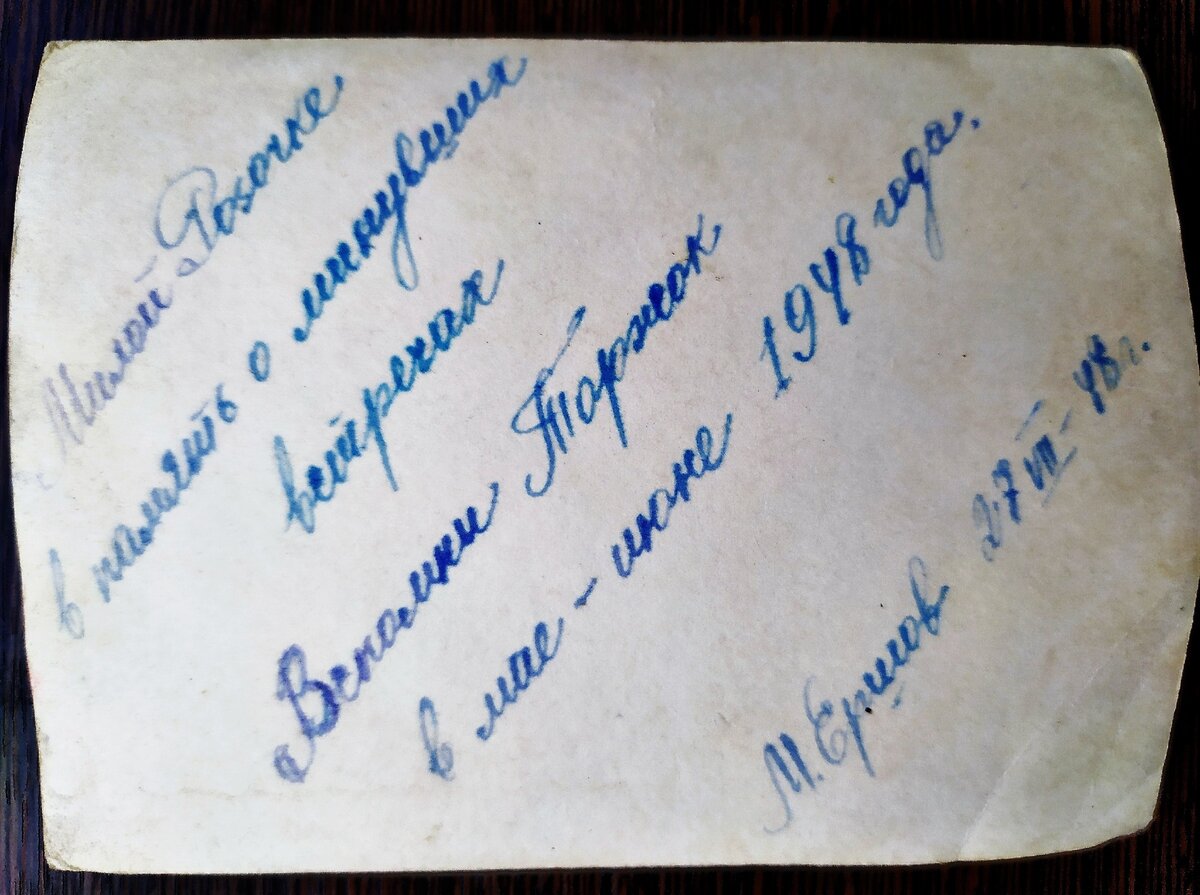 Милой Розочке
в память о минувших
встречах
Вспомни Торжок
в мае - июне 1948 года.
М. Ершов 27 VII 48 г.